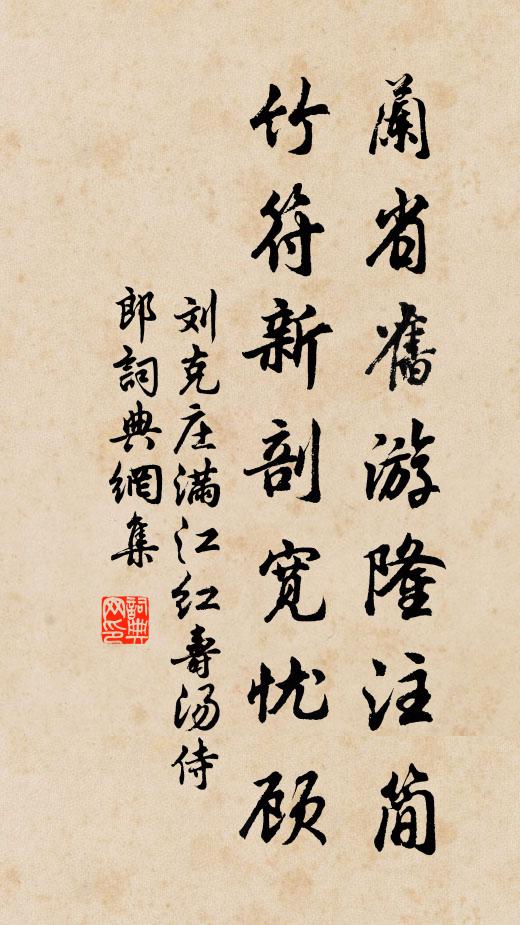 蘭省舊游隆注简
竹符新剖寬忧顾
刘克庄满江红壽汤侍
郎詞典網集
詞典网印